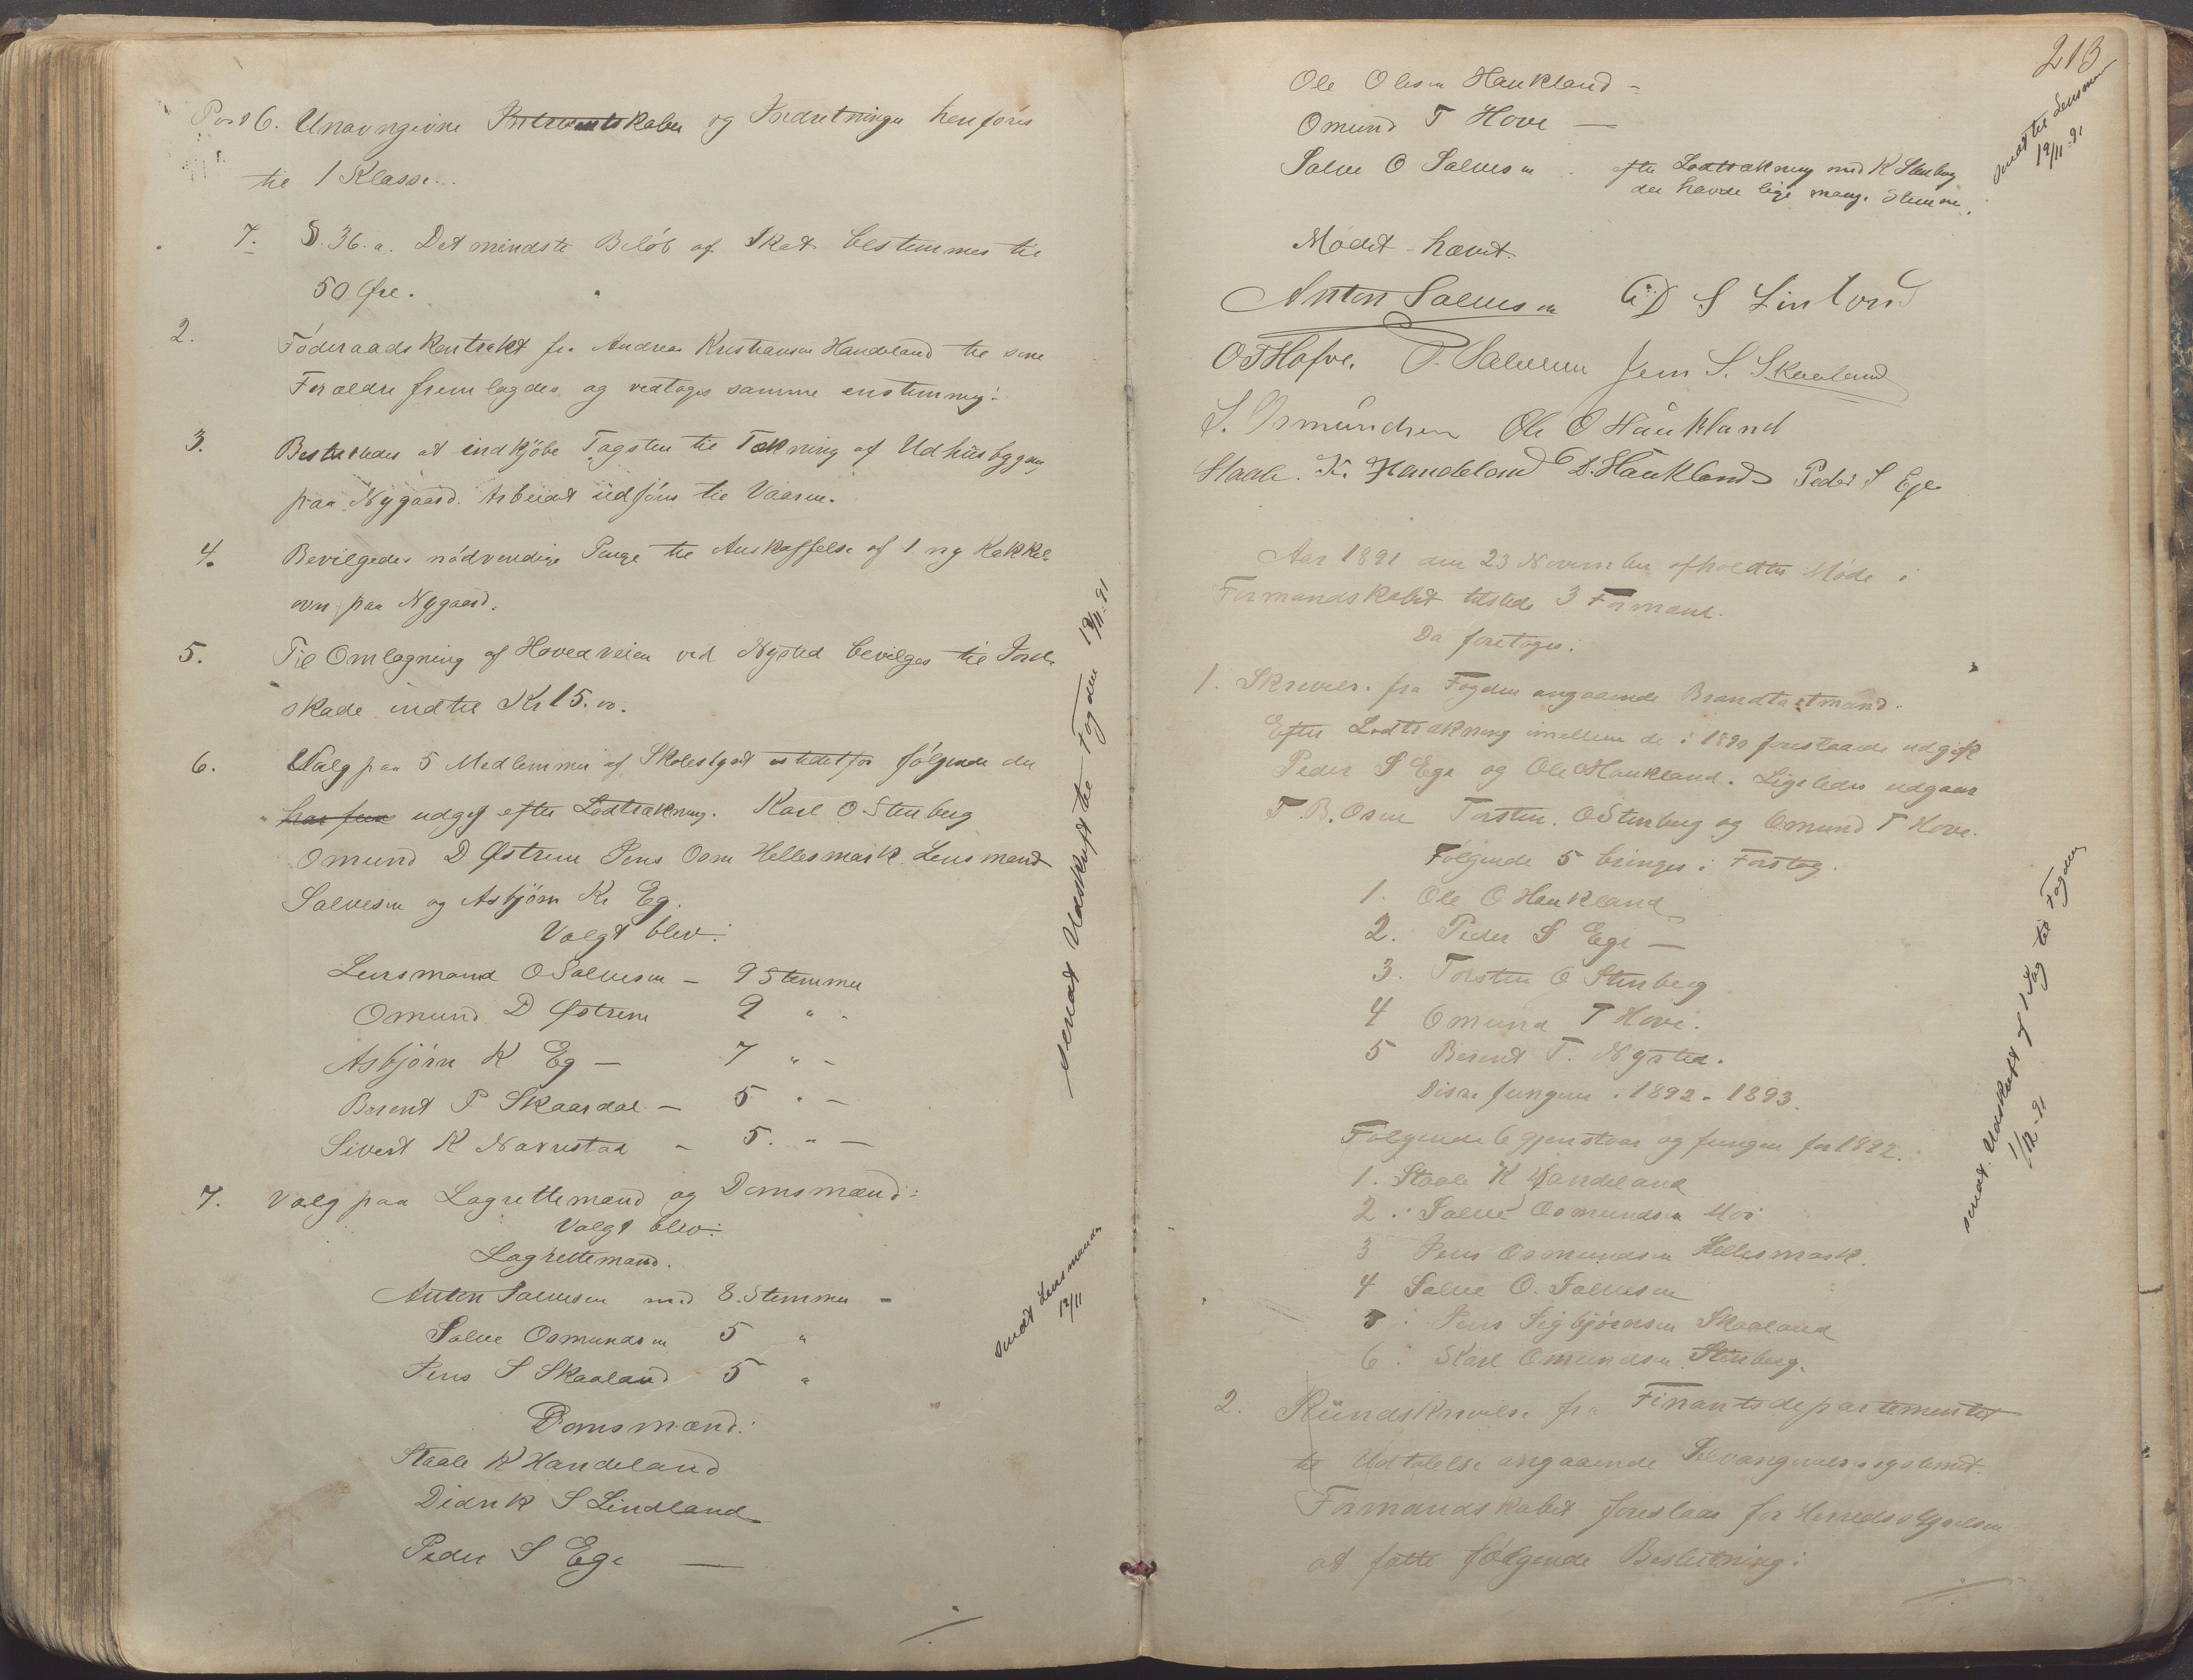 Post 6. Unavngivne Redskaber og Indretninger henføres
til 1 Klasse.
7. §. 36. a. Det mindste Beløb af Skat bestemmes til
50 Øre.
2. Føderaadskontrakt fra Andreas Kristiansen Handeland til sine
Forældre fremlagdes og vedtoges samme enstemmig.
3. Besluttedes at indkjøbe Tagsten til Tækning af Udhusbygning
paa Nygaard. Arbeidet udføres til Vaaren.
4. Bevilgedes nødvendige Penge til Anskaffelse af 1 ny Kakkel-
ovn paa Nygaard.
5. Til Omlægning af Hovedveien ved Nysted bevilges til Jord-
skade indtil Kr 15.00.
6. Valg paa 5 Medlemmer af Skolestyret istedetfor følgende der
har udgaf efter Lodtrækning. Karl O Stenberg
Omund D Østrem Jens Osm Hellesmark Lensmand
Salvesen og Asbjørn Kr Eg.
Valgt blev:
Lensmand O Salvesen – 9 Stemmer
Omund D Østrem 9 " -
Asbjørn K Eg – 7 " -
Berent P Skaardal – 5 " –
Sivert K Navrestad – 5. " –
7. Valg paa Lagrettemænd og Domsmænd:
Valgt blev:
Lagrettemænd.
Anton Salvesen med 8. Stemmer –
Salve Osmundsen 5 "
Jens S Skaaland 5 "
Domsmænd:
Staale K Handeland
Didrik S Lindland
Peder S Ege —
sendt Udskrift til Fogden 19/11-91
sendt Lensmanden
19/11
213
Ole Olsen Haukland –
Omund T Hove —
Salve O Salvesen . efter Lodtrækning med K Stenberg
der havde lige mange Stemmer.
sendt til Lensman
19/11-91
Mødet hævet.
Anton Salvesen D S Linland
O T Hofve. O. Salvesen Jens S. Skaaland
S. Osmundsen Ole O Haukland
Staale. K. Handeland O D. Haukland Peder S Ege
Aar 1891 den 23 November afholdtes Møde i
Formandskabet tilstede 3 Formænd.
Da foretoges:
1. Skrivelse fra Fogden angaaende Brandtaxtmænd.
Efter Lodtrækning imellem de i 1890 foreslaaede udgik
Peder S Ege og Ole O Haukland. Ligeledes udgaar
T. B. Osen Torsten. O Stenberg og Omund T Hove.
Følgende 5 bringes i Forslag.
1. Ole O Haukland
2. Peder S Ege —
3. Torsten O Stenberg
4 Omund T Hove.
5 Berent T. Nysted.
Disse fungere i 1892 - 1893.
Følgende 6 gjenstaar og fungere for 1892.
1. Staale K Handeland
2. Salve Osmundsen Moi
3 Jens Osmundsen Hellesmark.
4 Salve O. Salvesen
5 Jens Sigbjørnsen Skaaland
6. Karl Omundsen Stenberg.
sendt Udskrift af 1 Sag til Fogden
1/12-91
2. Rundskrivelse fra Finantsdepartementet
til Udtalelse angaaende
Formandskabet foreslaar for Herredsstyrelsen
at fatte følgende Beslutning: